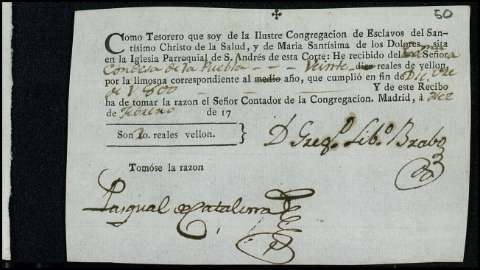 50
Como Tesorero que soy de la Ilustre Congregacion de Esclavos del San-
tísimo Christo de la Salud, y de Maria Santísima de los Dolores, sita
en la Iglesia Parroquial de S. Andrés de esta Corte: He recibido de la Señora
Condesa de la Puebla - - - Veinte reales de vellon,
por la limosna correspondiente al medio año, que cumplió en fin de Dic.bre
de 1800 Y de este Recibo
ha de tomar la razon el Señor Contador de la Congregacion. Madrid, á diez
de Febrero de 17
Son 20. reales vellon.
D. Greg.o Lib.o Brabo
Tomóse la razon
Pasqual Catalina